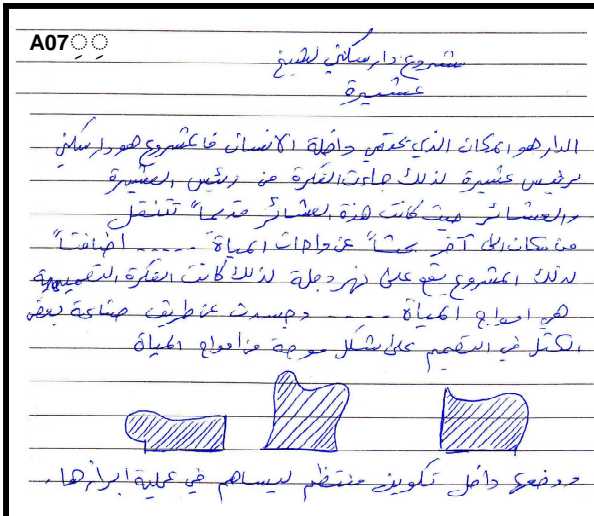 A07
مشروع دار سكني لشيخ
عشيرة
الدار هو المكان الذي يحتمي داخلة الانسان فالمشروع هو دار سكني
لرئيس عشيرة لذلك جاءت الفكرة من رئيس العشيرة
والعشائر حيث كانت هذة العشائر قديماً تتنقل
من مكان الى آخر بحثاً عن واحات المياة ..... اضافتاً
لذلك المشروع يقع على نهر دجلة لذلك كانت الفكرة التصميمية
هي امواج المياة ..... وجسدت عن طريق صناعة بعض
الكتل في التصميم على شكل موجة من امواج المياة
ووضعها داخل تكوين منتظم ليساهم في عملية ابرازها.